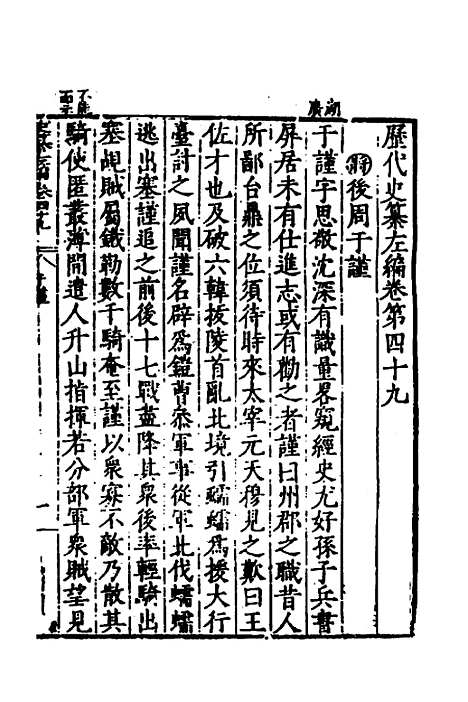 歷代史纂左編卷第四十九
後周于謹
于謹字思敬沈深有識量畧窺經史尤好孫子兵書
屏居未有仕進志或有勸之者謹曰州郡之職昔人
所鄙台鼎之位須待時來太宰元天穆見之歎曰王
佐才也及破六韓拔陵首亂北境引蠕蠕爲援大行
臺計之夙聞謹名辟爲鎧曹叅軍事從軍北伐蠕蠕
逃出塞謹追之前後十七戰盡降其衆後率輕騎出
塞覘賊屬鐵勒數千騎奄至謹以衆寡不敵乃散其
騎使匿叢薄間遣人升山指揮若分部軍衆賊望見